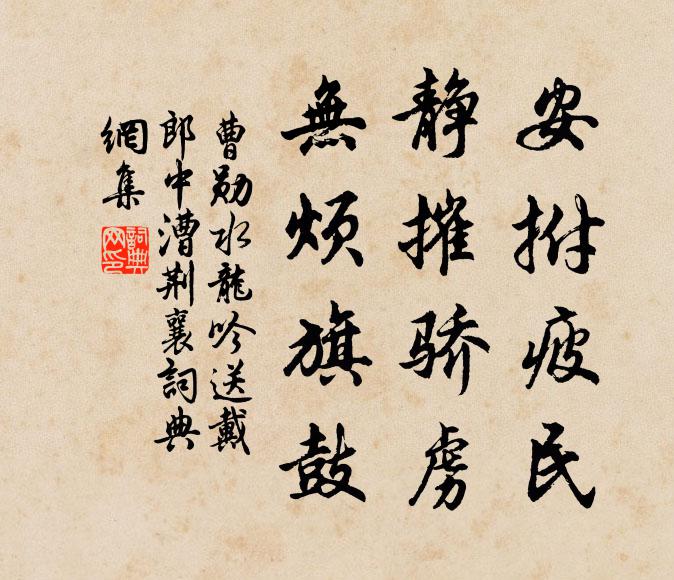 安拊疲民
静摧骄虏
無烦旗鼓
曹勋水龍吟送戴
郎中漕荆襄詞典
網集
詞典
网印